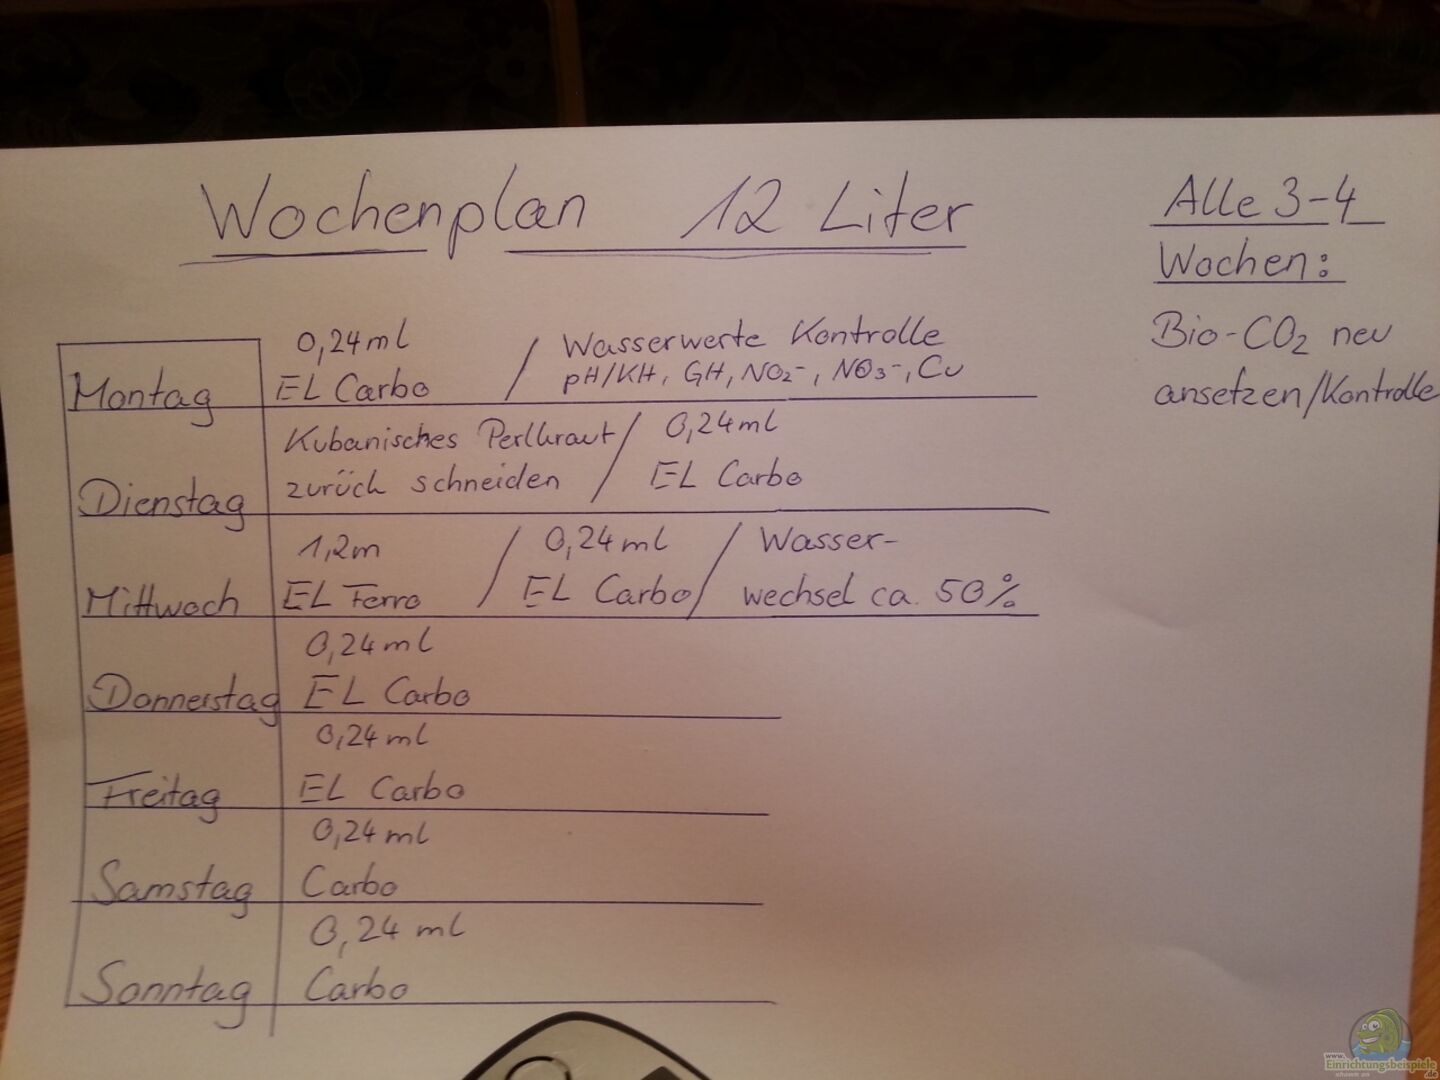 Wochenplan 12 Liter
Alle 3-4
Wochen:
Bio-CO₂ neu
ansetzen/Kontrolle
0,24ml / Wasserwerte Kontrolle
Montag EL Carbo pH/KH, GH, NO₂⁻, NO₃⁻, Cu
Kubanisches Perlkraut / 0,24ml
Dienstag zurück schneiden EL Carbo
1,2m / 0,24ml / Wasser-
Mittwoch EL Ferro EL Carbo wechsel ca. 50%
0,24ml
Donnerstag EL Carbo
0,24ml
Freitag EL Carbo
0,24ml
Samstag Carbo
0,24 ml
Sonntag Carbo
www.
Einrichtungsbeispiele
.de